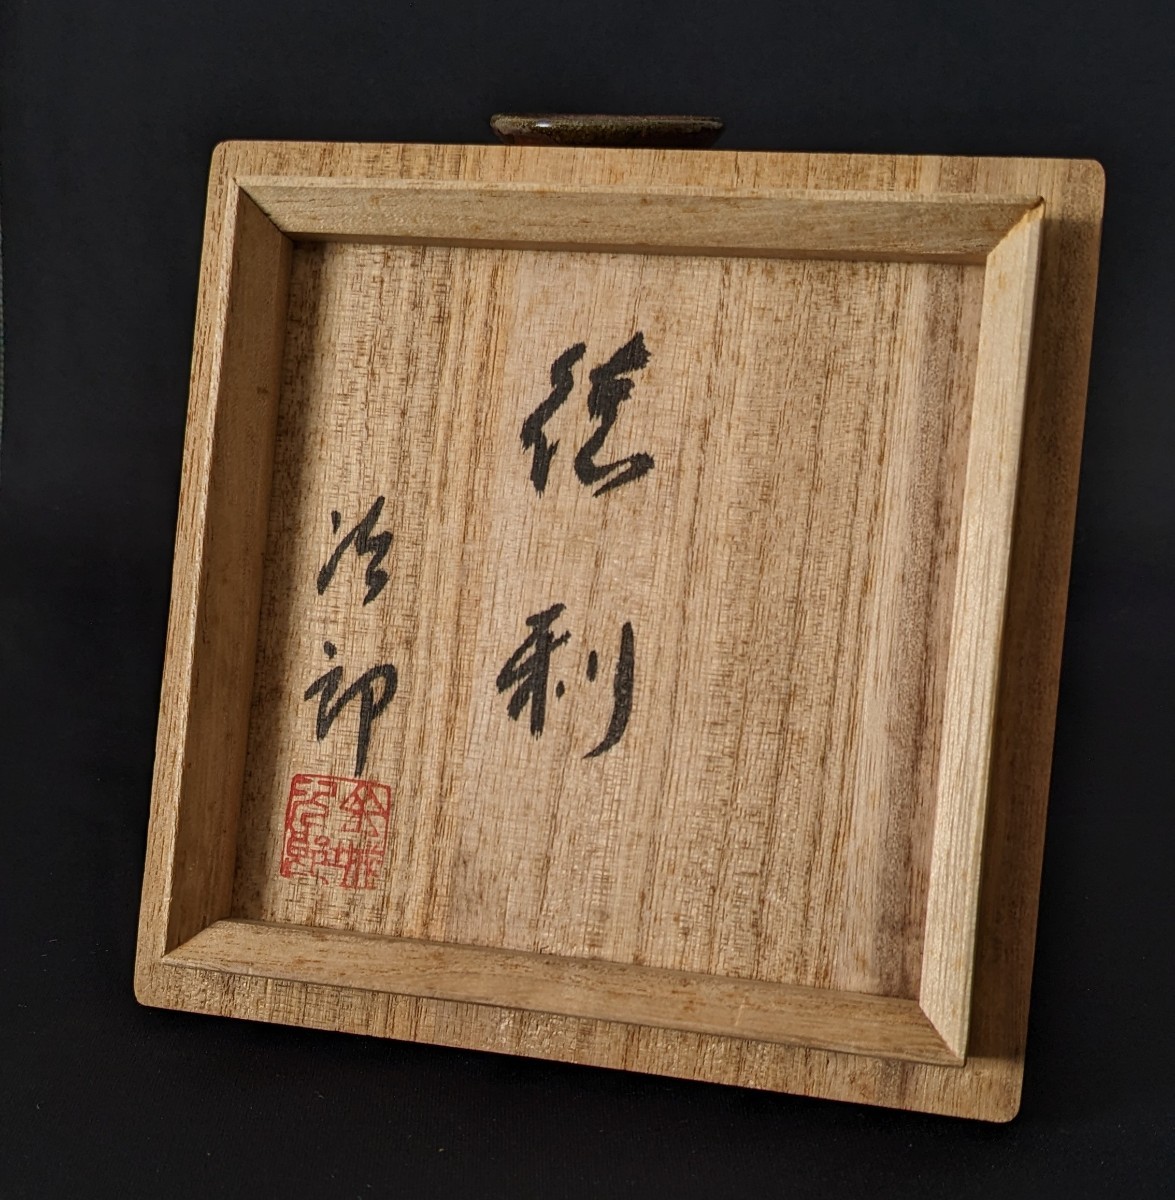 徳利
治郎